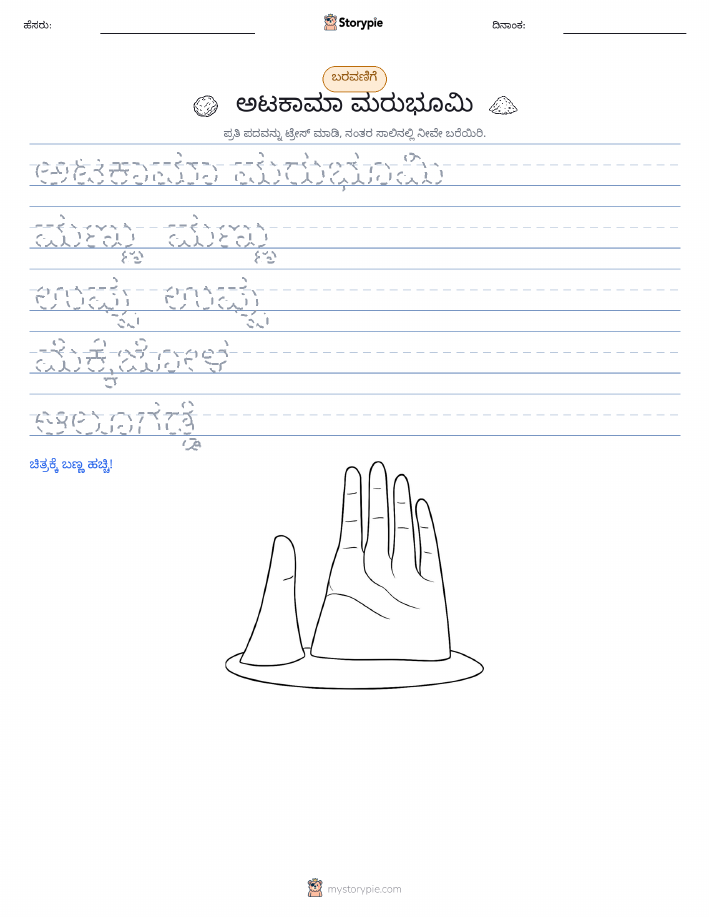 ಹೆಸರು: Storypie ದಿನಾಂಕ:
ಬರವಣಿಗೆ
ಅಟಕಾಮಾ ಮರುಭೂಮಿ
ಪ್ರತಿ ಪದವನ್ನು ಟ್ರೇಸ್ ಮಾಡಿ, ನಂತರ ಸಾಲಿನಲ್ಲಿ ನೀವೇ ಬರೆಯಿರಿ.
ಅಟಕಾಮಾ ಮರುಭೂಮಿ
ಮಣ್ಣು ಮಣ್ಣು
ಉಪ್ಪು ಉಪ್ಪು
ಮೆಕ್ಕೆಜೋಳ
ಆಲೂಗಡ್ಡೆ
ಚಿತ್ರಕ್ಕೆ ಬಣ್ಣ ಹಚ್ಚಿ!
mystorypie.com